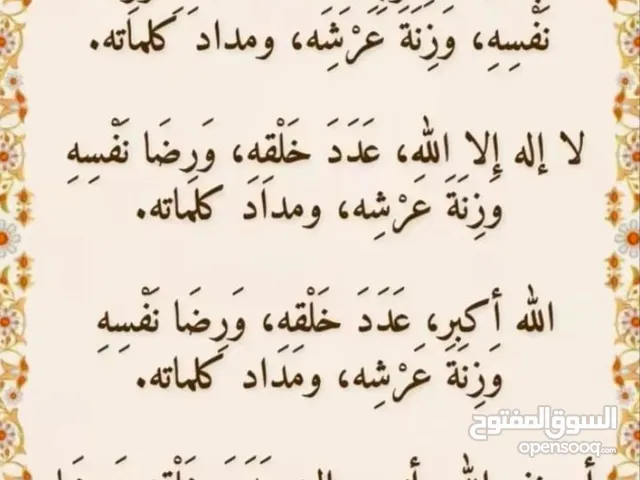 نَفْسِهِ، وَزِنَةَ عَرْشَه، ومداد كلماته.
لا إله إلا اللهِ، عَدَدَ خَلْقِهِ، وَرِضَا نَفْسِهِ
وَزِنَةَ عَرْشِه، ومدادَ كلماته.
الله أكبرِ، عَدَدَ خَلْقِهِ، وَرِضَا نَفْسِهِ
وَزِنَةَ عَرْشِه، ومَدَاد كلماته.
السوق المفتوح
opensooq.com